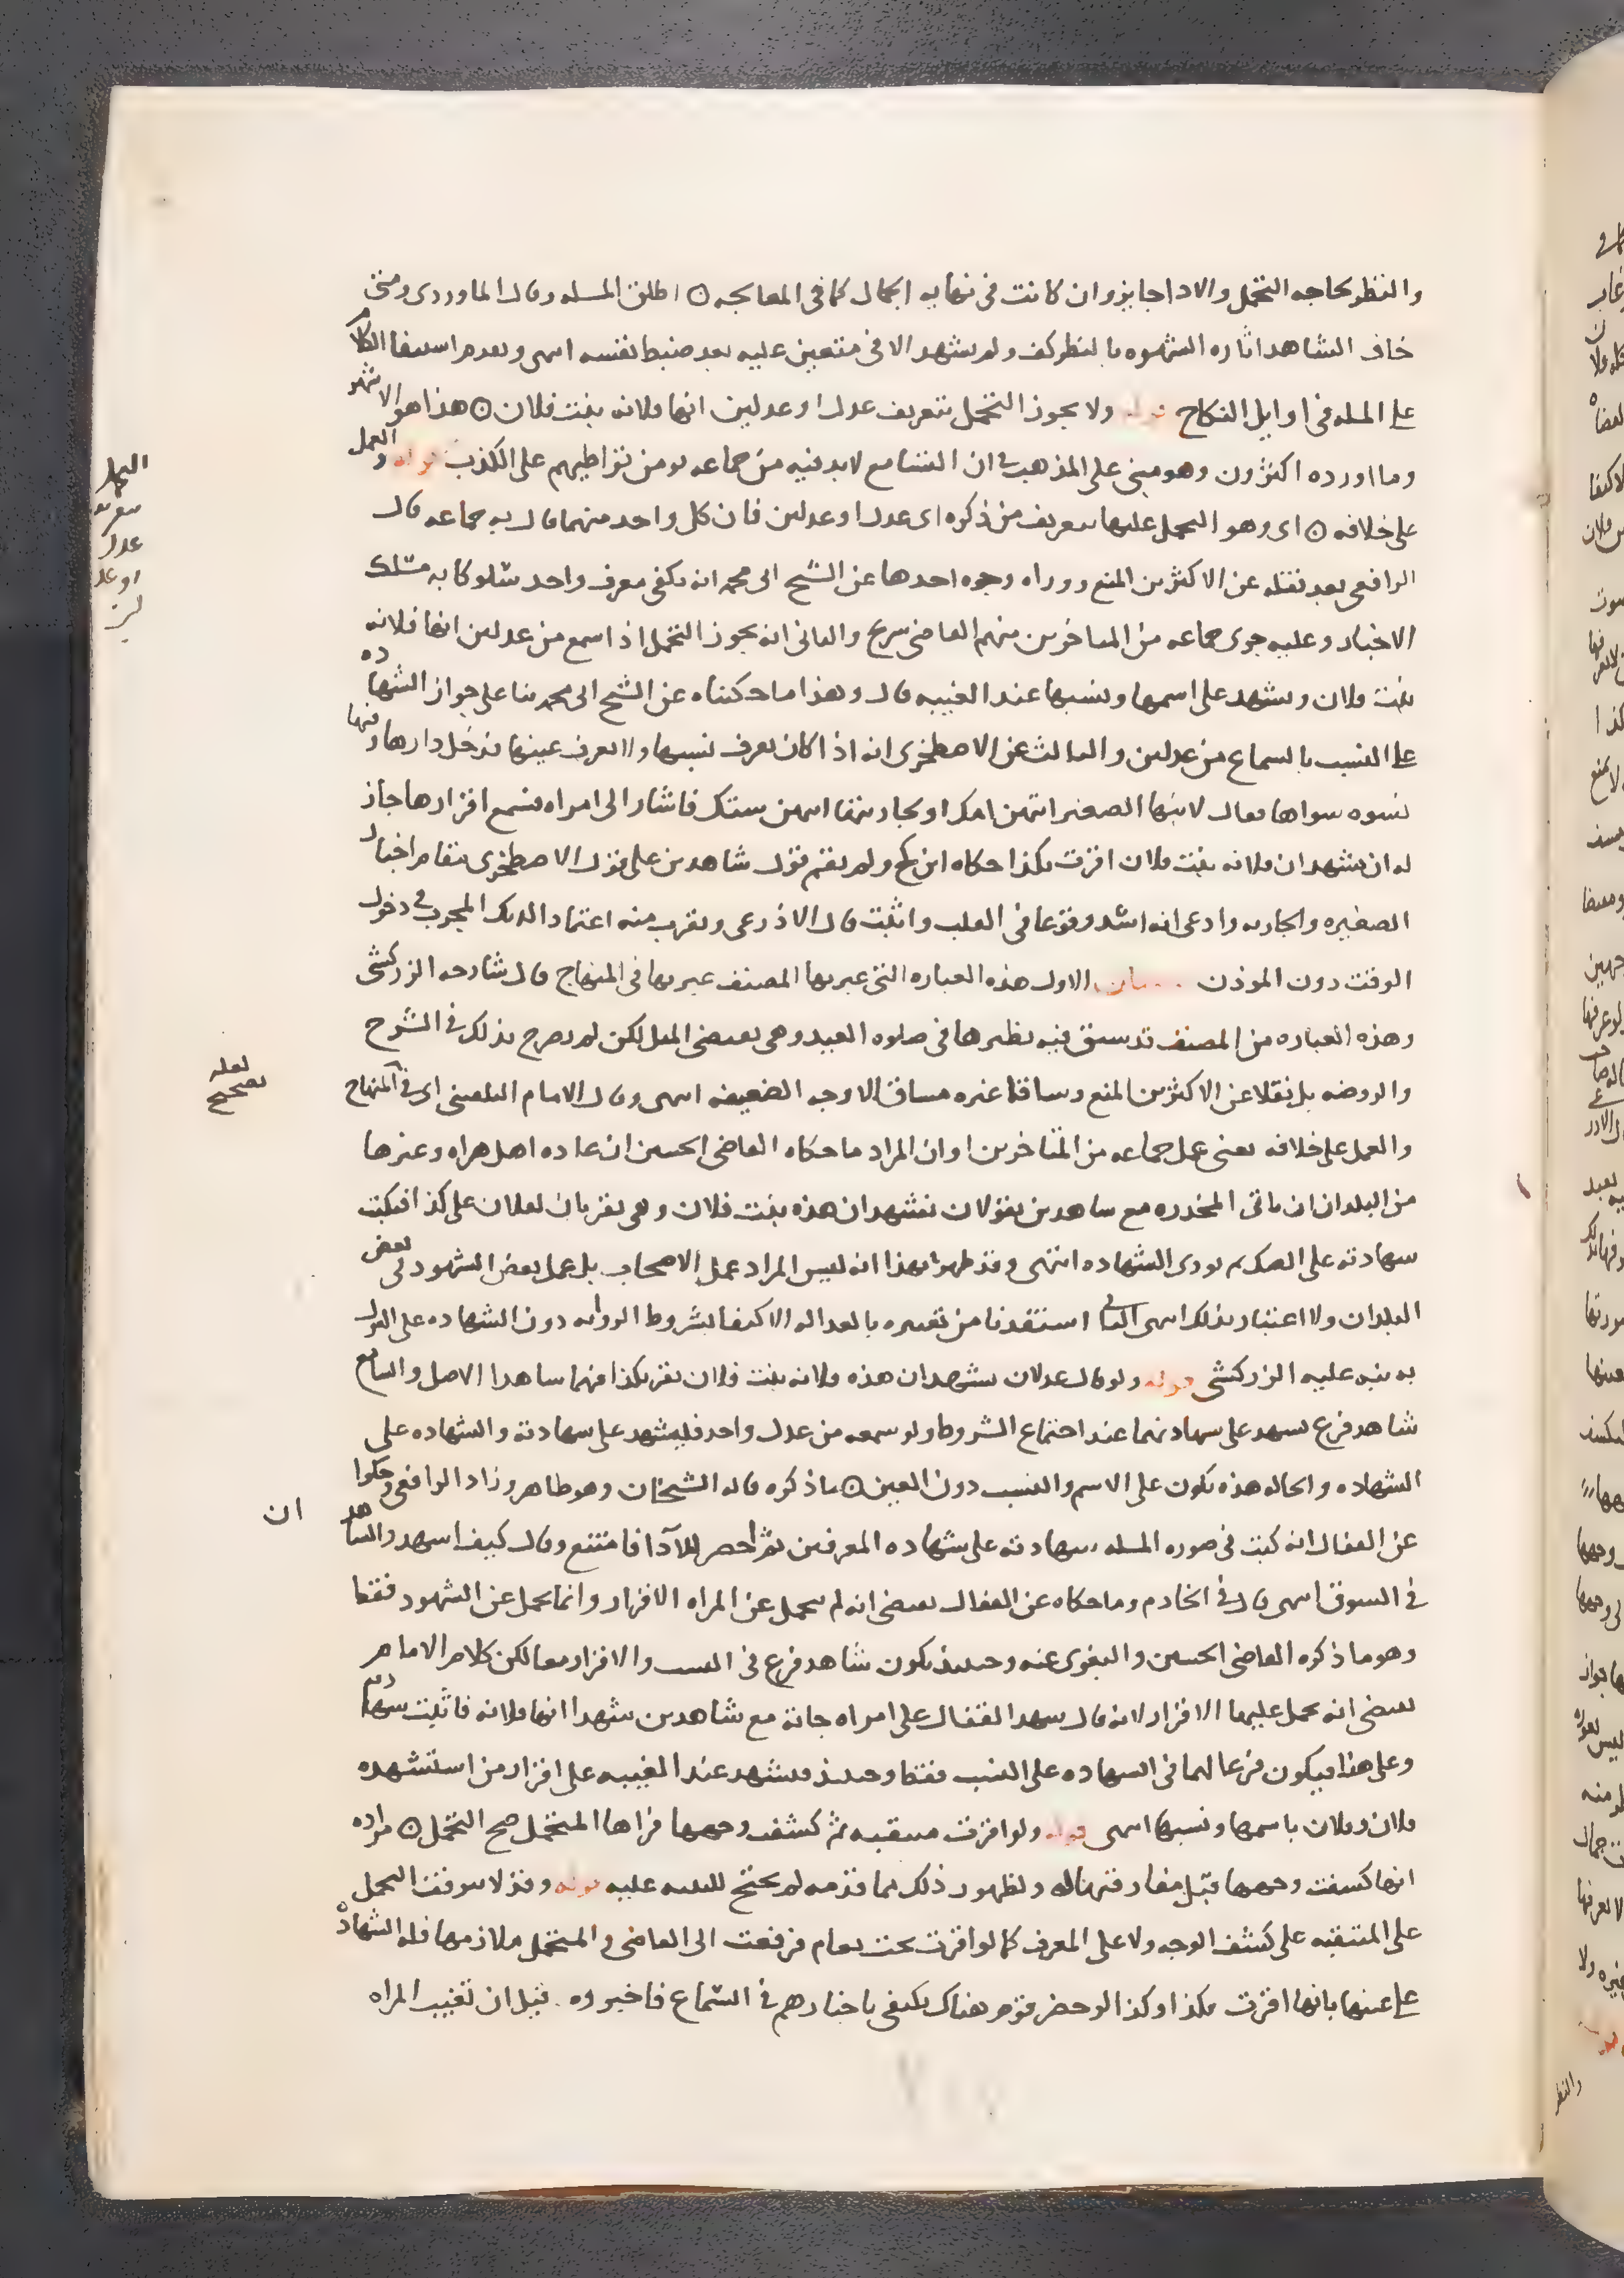 والنظر لحاجه التحمل والادا جايز وان كانت في نهايه الجمال كما في المعالجه ۞ اطلق المسله وقال الماوردى ومتى
خاف الشاهد اثاره الشهوه بالنظر كف ولم يشهد الا في متعين عليه بعد ضبط نفسه اسهى وبعدم استيفا الكلام
على المسله في اوايل النكاح قوله ولا يجوز التحمل بتعريف عدل او عدلين انها فلانه بنت فلان ۞ هذا هو الاشهر
وما اورده اكثرون وهو مبنى على المذهب في ان التسامع لابد فيه من جماعه يومن تواطيهم على الكذب قوله والعمل
على خلافه ۞ اى وهو التحمل عليها بتعريف من ذكره اى عدل او عدلين فان كل واحد منهما قال به جماعه قال
الرافعى بعد نقله عن الاكثرين المنع ووراه وجوه احدها عن الشيخ ابى محمد انه يكفى معرف واحد سلوكا به مسلك
الاخبار وعليه جرى جماعه من المتاخرين منهم القاضى سريج والثانى انه يجوز التحمل اذا سمع من عدلين انها فلانه
بنت فلان ويشهد على اسمها ونسبها عند الغيبه قال وهذا ما حكيناه عن الشيخ ابى محمد بنا على جواز الشهاده
على النسب بالسماع من عدلين والثالث عن الاصطخرى انه اذا كان يعرف نسبها ولا يعرف عينها فدخل دارها وفيها
نسوه سواها فقال لابنها الصغير ايتهن امك او لجاريتها ايتهن ستك فاشار الى امراه فسمع اقرارها جاز
له ان يشهد ان فلانه بنت فلان اقرت بكذا حكاه ابن كج ولم يقم قول شاهدين على قول الاصطخرى مقام اخبار
الصغيره والجاريه وادعى انه اشد وقوعا في القلب واثبت قال الاذرعى ويقرب منه اعتماد الديك المجرب في دخول
الوقت دون الموذن الاول هذه العباره التى عبر بها المصنف عبر بها في المنهاج قال شارحه الزركشى
وهذه العباره من المصنف قد سبق فيه نظيرها في صلوه العيد وهى تقتضى الميل لكن لم يصرح بذلك في الشرح
والروضه بل نقلا عن الاكثرين المنع وساقا غيره مساق الاوجه الضعيفه اسهى وقال الامام البلقينى اى في المنهاج
والعمل على خلافه يعنى عمل جماعه من المتاخرين او ان المراد ما حكاه القاضى الحسين ان عاده اهل هراه وغيرها
من البلدان ان ياتى المخدره مع شاهدين يقولان نشهد ان هذه بنت فلان وهى تقر بان لفلان على كذا فيكتب
شهادته على الصك ثم يودى الشهاده انتهى وقد ظهر بهذا انه ليس المراد عمل الاصحاب بل عمل بعض الشهود في بعض
البلدان ولا اعتبار بذلك اسهى الثانى استفدنا من تعبيره بالعداله الاكتفا بشروط الروايه دون الشهاده على القول
به نبه عليه الزركشى قوله ولو قال عدلان نشهد ان هذه فلانه بنت فلان تقر بكذا فهما شاهدا الاصل والسامع
شاهد فرع يشهد على شهادتهما عند اجتماع الشروط ولو سمعه من عدل واحد فليشهد على شهادته والشهاده على
الشهاده والحاله هذه تكون على الاسم والنسب دون العين ۞ ما ذكره قاله الشيخان وهو ظاهر وزاد الرافعى وحكوا
عن القفال انه كتب في صوره المسله شهادته على شهاده المعرفين ثم احضر للادا فامتنع وقال كيف اشهد والشاهدان
في السوق اسهى قال في الخادم وما حكاه عن القفال يقتضى انه لم يتحمل عن المراه الاقرار وانما يحمل عن الشهود فقط
وهو ما ذكره القاضى الحسين والبغوى عنه وحينئذ يكون شاهد فرع في النسب والاقرار معا لكن كلام الامام
يقتضى انه يحمل عليها الاقرار لانه قال شهد القفال على امراه جاته مع شاهدين شهدا انها فلانه فاثبت شهادته
وعلى هذا فيكون فرعا لهما في الشهاده على النسب فقط وحينئذ فيشهد عند الغيبه على اقرار من استشهده
فلان وفلان باسمها ونسبها اسهى قوله ولو اقرت منتقبه ثم كشفت وجهها فراها المتحمل صح التحمل ۞ مراده
انها كشفت وجهها قبل مفارقتها له ولظهور ذلك مما قدمه لم يحتج للتنبيه عليه قوله وقد لا يتوقف التحمل
على المتنقبه على كشف الوجه ولا على المعرف كما لو اقرت تحت نقاب فرفعت الى القاضى والمتحمل ملازمها فله الشهاده
على عينها بانها اقرت بكذا وكذا لو حضر قوم هناك يكتفى باخبارهم في التسامع فاخبروه قبل ان تغيب المراه
التحمل
بتعريف
عدل
او عد
لين
لعله
تصحيح
ان